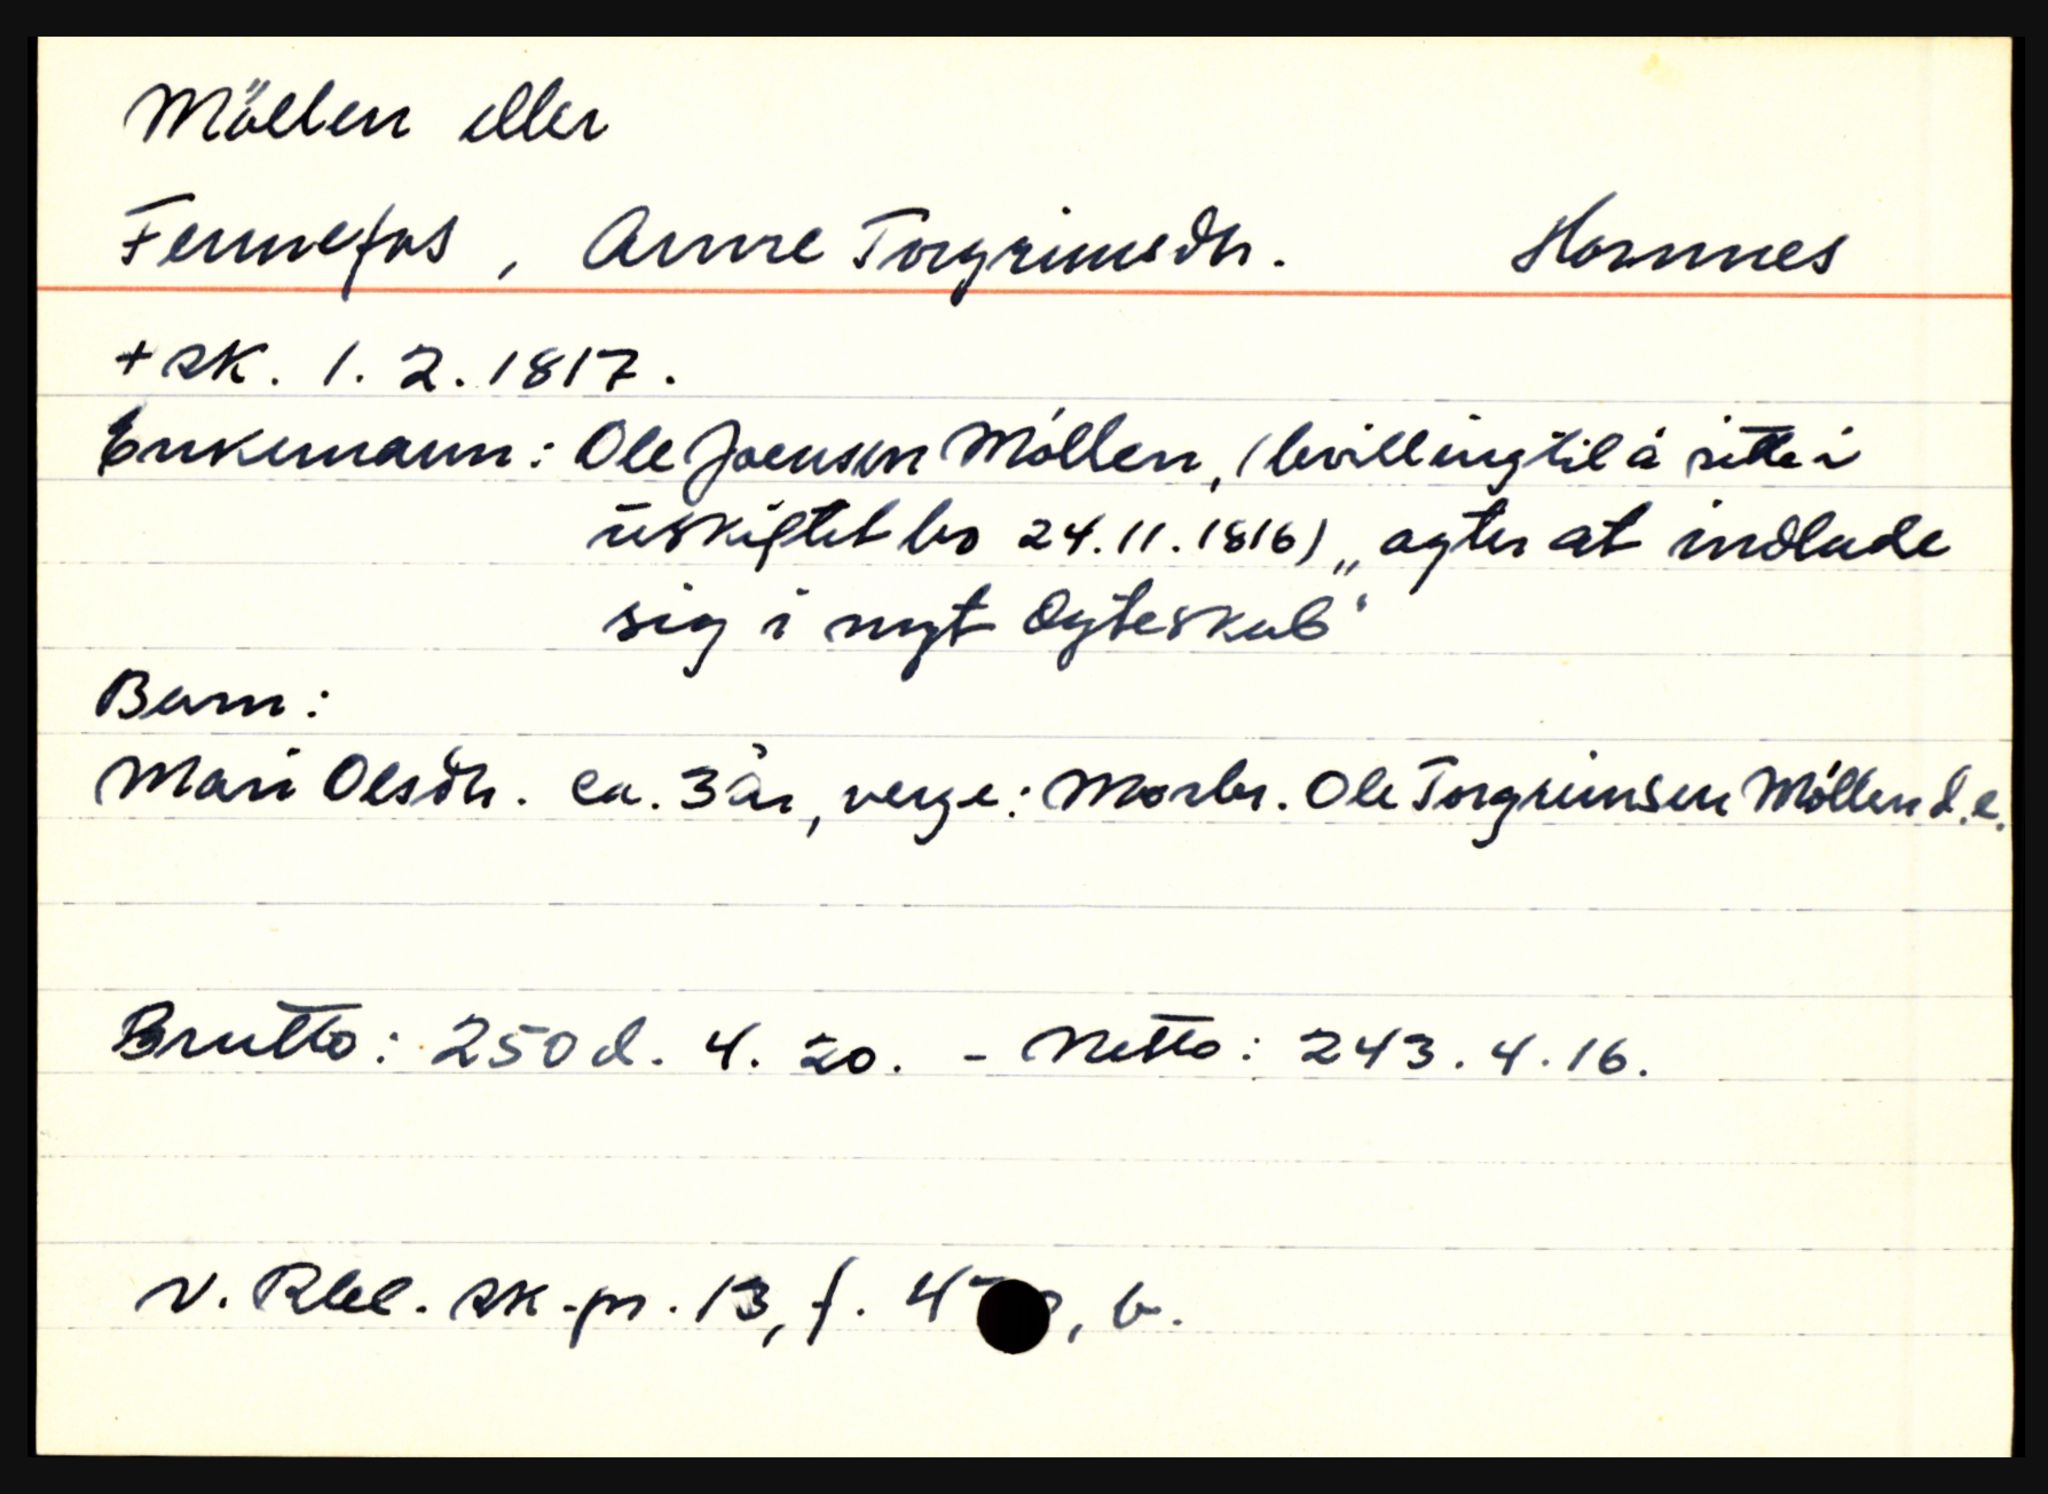 Möllen eller
Fennefos, Anne Torgrimsdtr. Hornnes
+ sk. 1. 2. 1817.
Enkemann: Ole Joensen Möllen, (bevilling til å sitte i
uskiftet bo 24.11.1816) „agter at indlade
sig i nyt Ægteskab“
Barn:
Mari Olsdtr. ca. 3 år, verge: Morbr. Ole Torgrimsen Möllen d.e.
Brutto: 250 d. 4. 20. - Netto: 243. 4. 16.
V. Rbel. sk-pr. 13, f. , b.